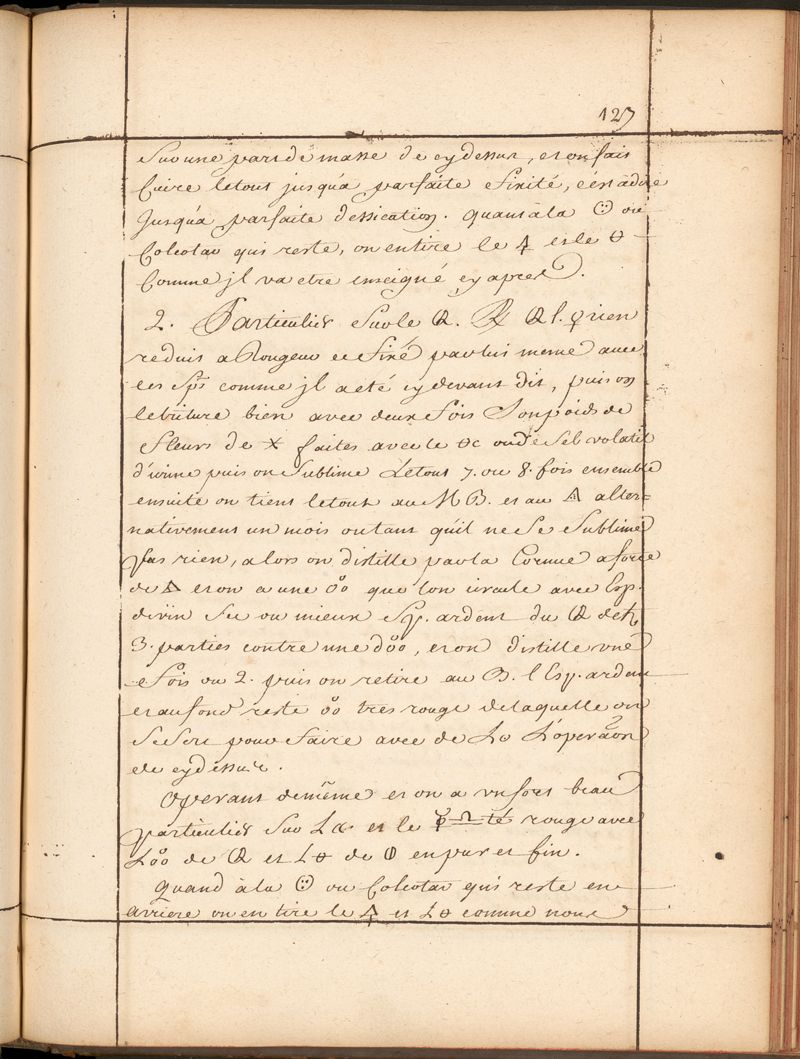 127
Sur une part de masse de cy dessus, et on fait
Cuire le tout jusqu'a parfaite fixité, c'est a dire
Jusqu'a parfaite dessication. quant à la ou
Colcotar qui reste, on en tire le 🜍 et le 🜔
Comme jl va etre enseigné cy apres.
2. Particulier Sur le ℞ l. ♀ rien
reduit a Rougeur et fixé par lui meme avec
les Spts comme jl a eté cy devant dit, puis on
le triture bien avec deux fois Son poids de
fleurs de faites avec le ou de Sel volatil
d'urine puis on Sublime Le tout 7. ou 8. fois ensemble
ensuite on tient le tout au M B. et au 🜂 alter=
nativement un mois ou tant qu'il ne Se Sublime
pas rien, alors on distille par la Cornue a force
de 🜂 et on a une que lon circule avec Esp.
de vin Sec ou mieux Sp. ardent du de ♄
3. parties contre une d et on distille une
fois ou 2. puis on retire au B. l Esp. ardent
et au fond reste tres rouge de laquelle on
Se Sert pour faire avec de L'operaõn
de cy dessus.
Operant de mème et on a un fort beau
particulier Sur et le rouge avec
de et L🜔 de en pur et fin.
Quand à la ou Colcotar qui reste en
arriere on en tire le 🜍 et L🜔 comme nous